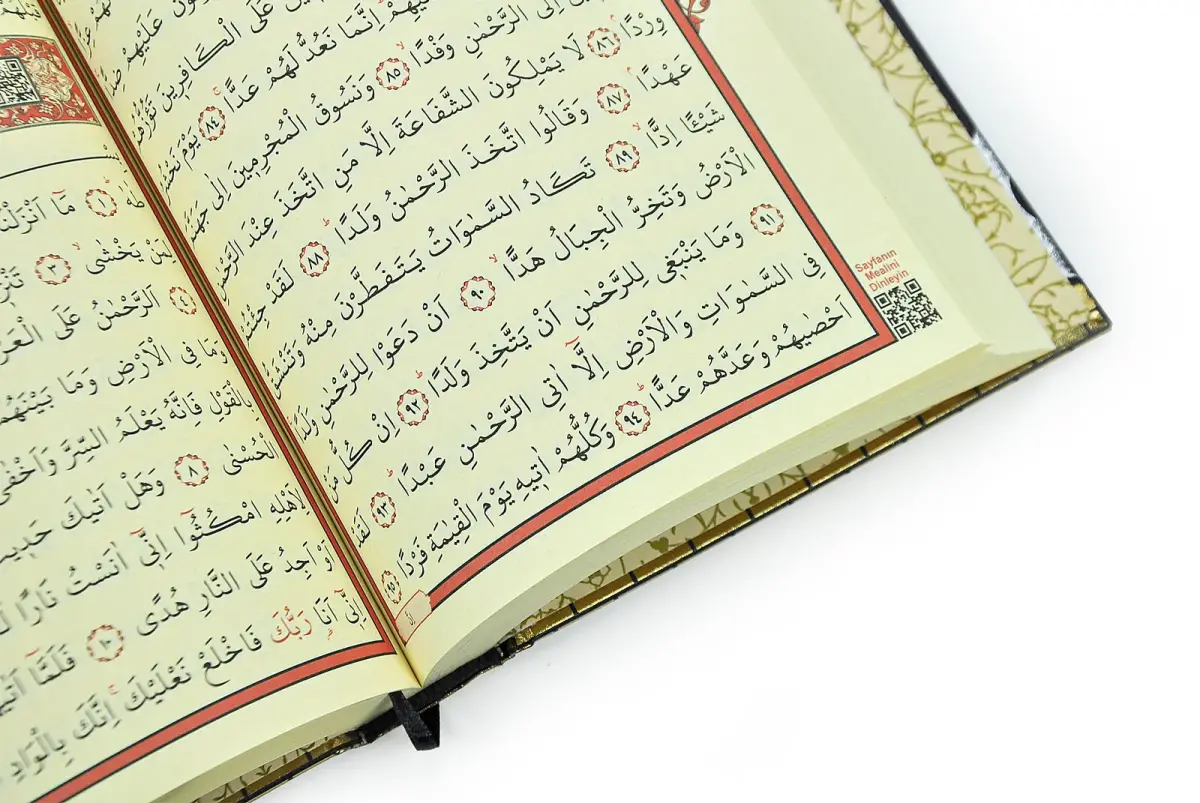 عَلَيْهِمْ
عَلَى الْكَافِر۪ينَ تَؤُزُّهُمْ
اِنَّمَا نَعُدُّ لَهُمْ عَدًّاۚ ﴿٨٤﴾ يَوْمَ نَحْشُرُ
اِلَى الرَّحْمٰنِ وَفْدًاۙ ﴿٨٥﴾ وَنَسُوقُ الْمُجْرِم۪ينَ اِلٰى جَهَنَّمَ
وِرْدًاۢ ﴿٨٦﴾ لَا يَمْلِكُونَ الشَّفَاعَةَ اِلَّا مَنِ اتَّخَذَ عِنْدَ الرَّحْمٰنِ
عَهْدًاۢ ﴿٨٧﴾ وَقَالُوا اتَّخَذَ الرَّحْمٰنُ وَلَدًاۜ ﴿٨٨﴾ لَقَدْ جِئْتُمْ
شَيْـًٔا اِدًّاۙ ﴿٨٩﴾ تَكَادُ السَّمٰوَاتُ يَتَفَطَّرْنَ مِنْهُ وَتَنْشَقُّ
الْاَرْضُ وَتَخِرُّ الْجِبَالُ هَدًّاۙ ﴿٩٠﴾ اَنْ دَعَوْا لِلرَّحْمٰنِ وَلَدًا
﴿٩١﴾ وَمَا يَنْبَغ۪ي لِلرَّحْمٰنِ اَنْ يَتَّخِذَ وَلَدًاۜ ﴿٩٢﴾ اِنْ كُلُّ مَنْ
فِي السَّمٰوَاتِ وَالْاَرْضِ اِلَّٓا اٰتِي الرَّحْمٰنِ عَبْدًاۜ ﴿٩٣﴾ لَقَدْ
اَحْصٰيهُمْ وَعَدَّهُمْ عَدًّاۜ ﴿٩٤﴾ وَكُلُّهُمْ اٰت۪يهِ يَوْمَ الْقِيٰمَةِ فَرْدًا ﴿٩٥﴾
Sayfanın
Mealini
Dinleyin
طٰهٰۜ ﴿١﴾ مَٓا اَنْزَلْنَا
لِمَنْ يَخْشٰىۙ ﴿٣﴾
﴿٤﴾ اَلرَّحْمٰنُ عَلَى الْعَرْشِ
وَمَا فِي الْاَرْضِ وَمَا بَيْنَهُمَا
بِالْقَوْلِ فَاِنَّهُ يَعْلَمُ السِّرَّ وَاَخْفٰى
الْحُسْنٰى ﴿٨﴾ وَهَلْ اَتٰيكَ حَد۪يثُ
لِاَهْلِهِ امْكُثُٓوا اِنّ۪ٓي اٰنَسْتُ نَارًا
اَوْ اَجِدُ عَلَى النَّارِ هُدًى ﴿١٠﴾ فَلَمَّٓا اَتٰيهَا
اِنّ۪ٓي اَنَا۬ رَبُّكَ فَاخْلَعْ نَعْلَيْكَۚ اِنَّكَ بِالْوَادِ